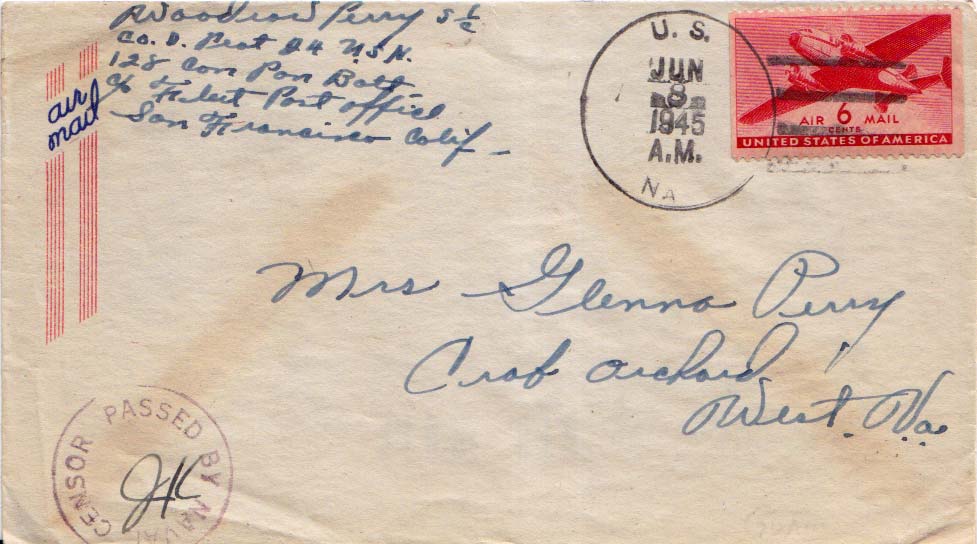 Woodrow Perry S 1/c
Co. D. Plat 24 U.S.N.
128 Con Pon Batt
c/o Fleet Post office
San Francisco Calif
air
mail
U. S.
JUN
8
1945
A.M.
NA
AIR 6 MAIL
CENTS
UNITED STATES OF AMERICA
Mrs Glenna Perry
Crab Orchard
West. Va.
PASSED BY NAVAL CENSOR
JK